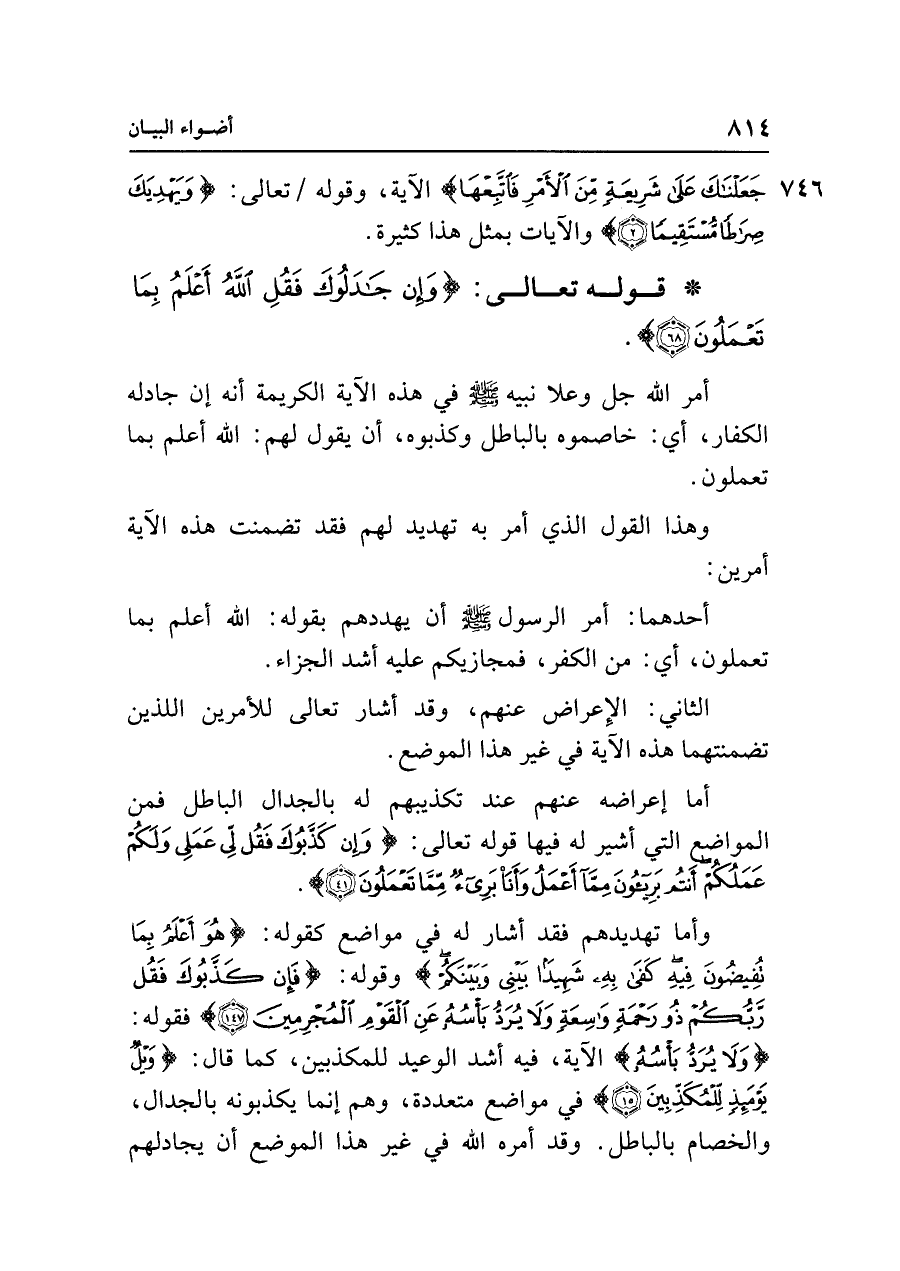 ٨١٤ أضواء البيان
٧٤٦ جَعَلْنَٰكَ عَلَىٰ شَرِيعَةٍ مِّنَ ٱلْأَمْرِ فَٱتَّبِعْهَا﴾ الآية، وقوله / تعالى: ﴿وَيَهْدِيَكَ
صِرَٰطًا مُّسْتَقِيمًا ٢﴾ والآيات بمثل هذا كثيرة.
* قوله تعالى: ﴿وَإِن جَٰدَلُوكَ فَقُلِ ٱللَّهُ أَعْلَمُ بِمَا
تَعْمَلُونَ ٦٨﴾.
أمر الله جل وعلا نبيه ﷺ في هذه الآية الكريمة أنه إن جادله
الكفار، أي: خاصموه بالباطل وكذبوه، أن يقول لهم: الله أعلم بما
تعملون.
وهذا القول الذي أمر به تهديد لهم فقد تضمنت هذه الآية
أمرين:
أحدهما: أمر الرسول ﷺ أن يهددهم بقوله: الله أعلم بما
تعملون، أي: من الكفر، فمجازيكم عليه أشد الجزاء.
الثاني: الإعراض عنهم، وقد أشار تعالى للأمرين اللذين
تضمنتهما هذه الآية في غير هذا الموضع.
أما إعراضه عنهم عند تكذيبهم له بالجدال الباطل فمن
المواضع التي أشير له فيها قوله تعالى: ﴿وَإِن كَذَّبُوكَ فَقُل لِّى عَمَلِى وَلَكُمْ
عَمَلُكُمْ ۖ أَنتُم بَرِيٓـُٔونَ مِمَّآ أَعْمَلُ وَأَنَا۠ بَرِىٓءٌ مِّمَّا تَعْمَلُونَ ٤١﴾.
وأما تهديدهم فقد أشار له في مواضع كقوله: ﴿هُوَ أَعْلَمُ بِمَا
تُفِيضُونَ فِيهِ ۖ كَفَىٰ بِهِۦ شَهِيدًۢا بَيْنِى وَبَيْنَكُمْ ۖ﴾ وقوله: ﴿فَإِن كَذَّبُوكَ فَقُل
رَّبُّكُمْ ذُو رَحْمَةٍ وَٰسِعَةٍ وَلَا يُرَدُّ بَأْسُهُۥ عَنِ ٱلْقَوْمِ ٱلْمُجْرِمِينَ ١٤٧﴾ فقوله:
﴿وَلَا يُرَدُّ بَأْسُهُۥ﴾ الآية، فيه أشد الوعيد للمكذبين، كما قال: ﴿وَيْلٌ
يَوْمَئِذٍ لِّلْمُكَذِّبِينَ ١٥﴾ في مواضع متعددة، وهم إنما يكذبونه بالجدال،
والخصام بالباطل. وقد أمره الله في غير هذا الموضع أن يجادلهم